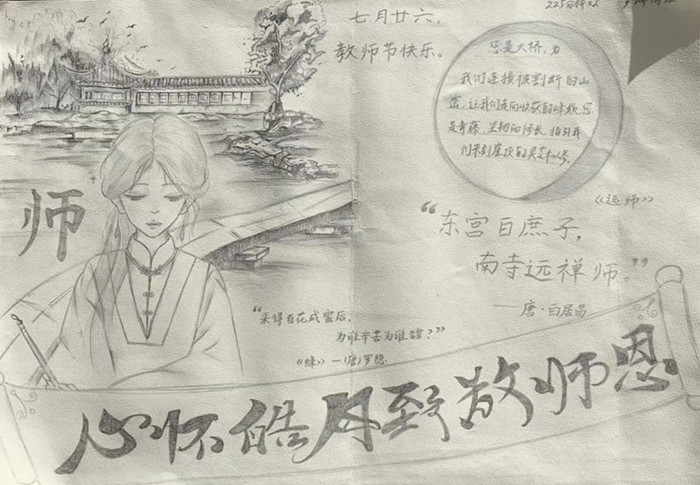 七月廿六，
教师节快乐。
您是大桥，为
我们连接被割断的山
峦，让我们走向收获的峰巅；您
是青藤，坚韧而修长，指引我
们采到崖顶的灵芝和人参。
师
《远师》
“东宫白庶子，
南寺远禅师。”
——唐·白居易
“采得百花成蜜后，
为谁辛苦为谁甜？”
《蜂》—（唐）罗隐
心怀皓月致敬师恩